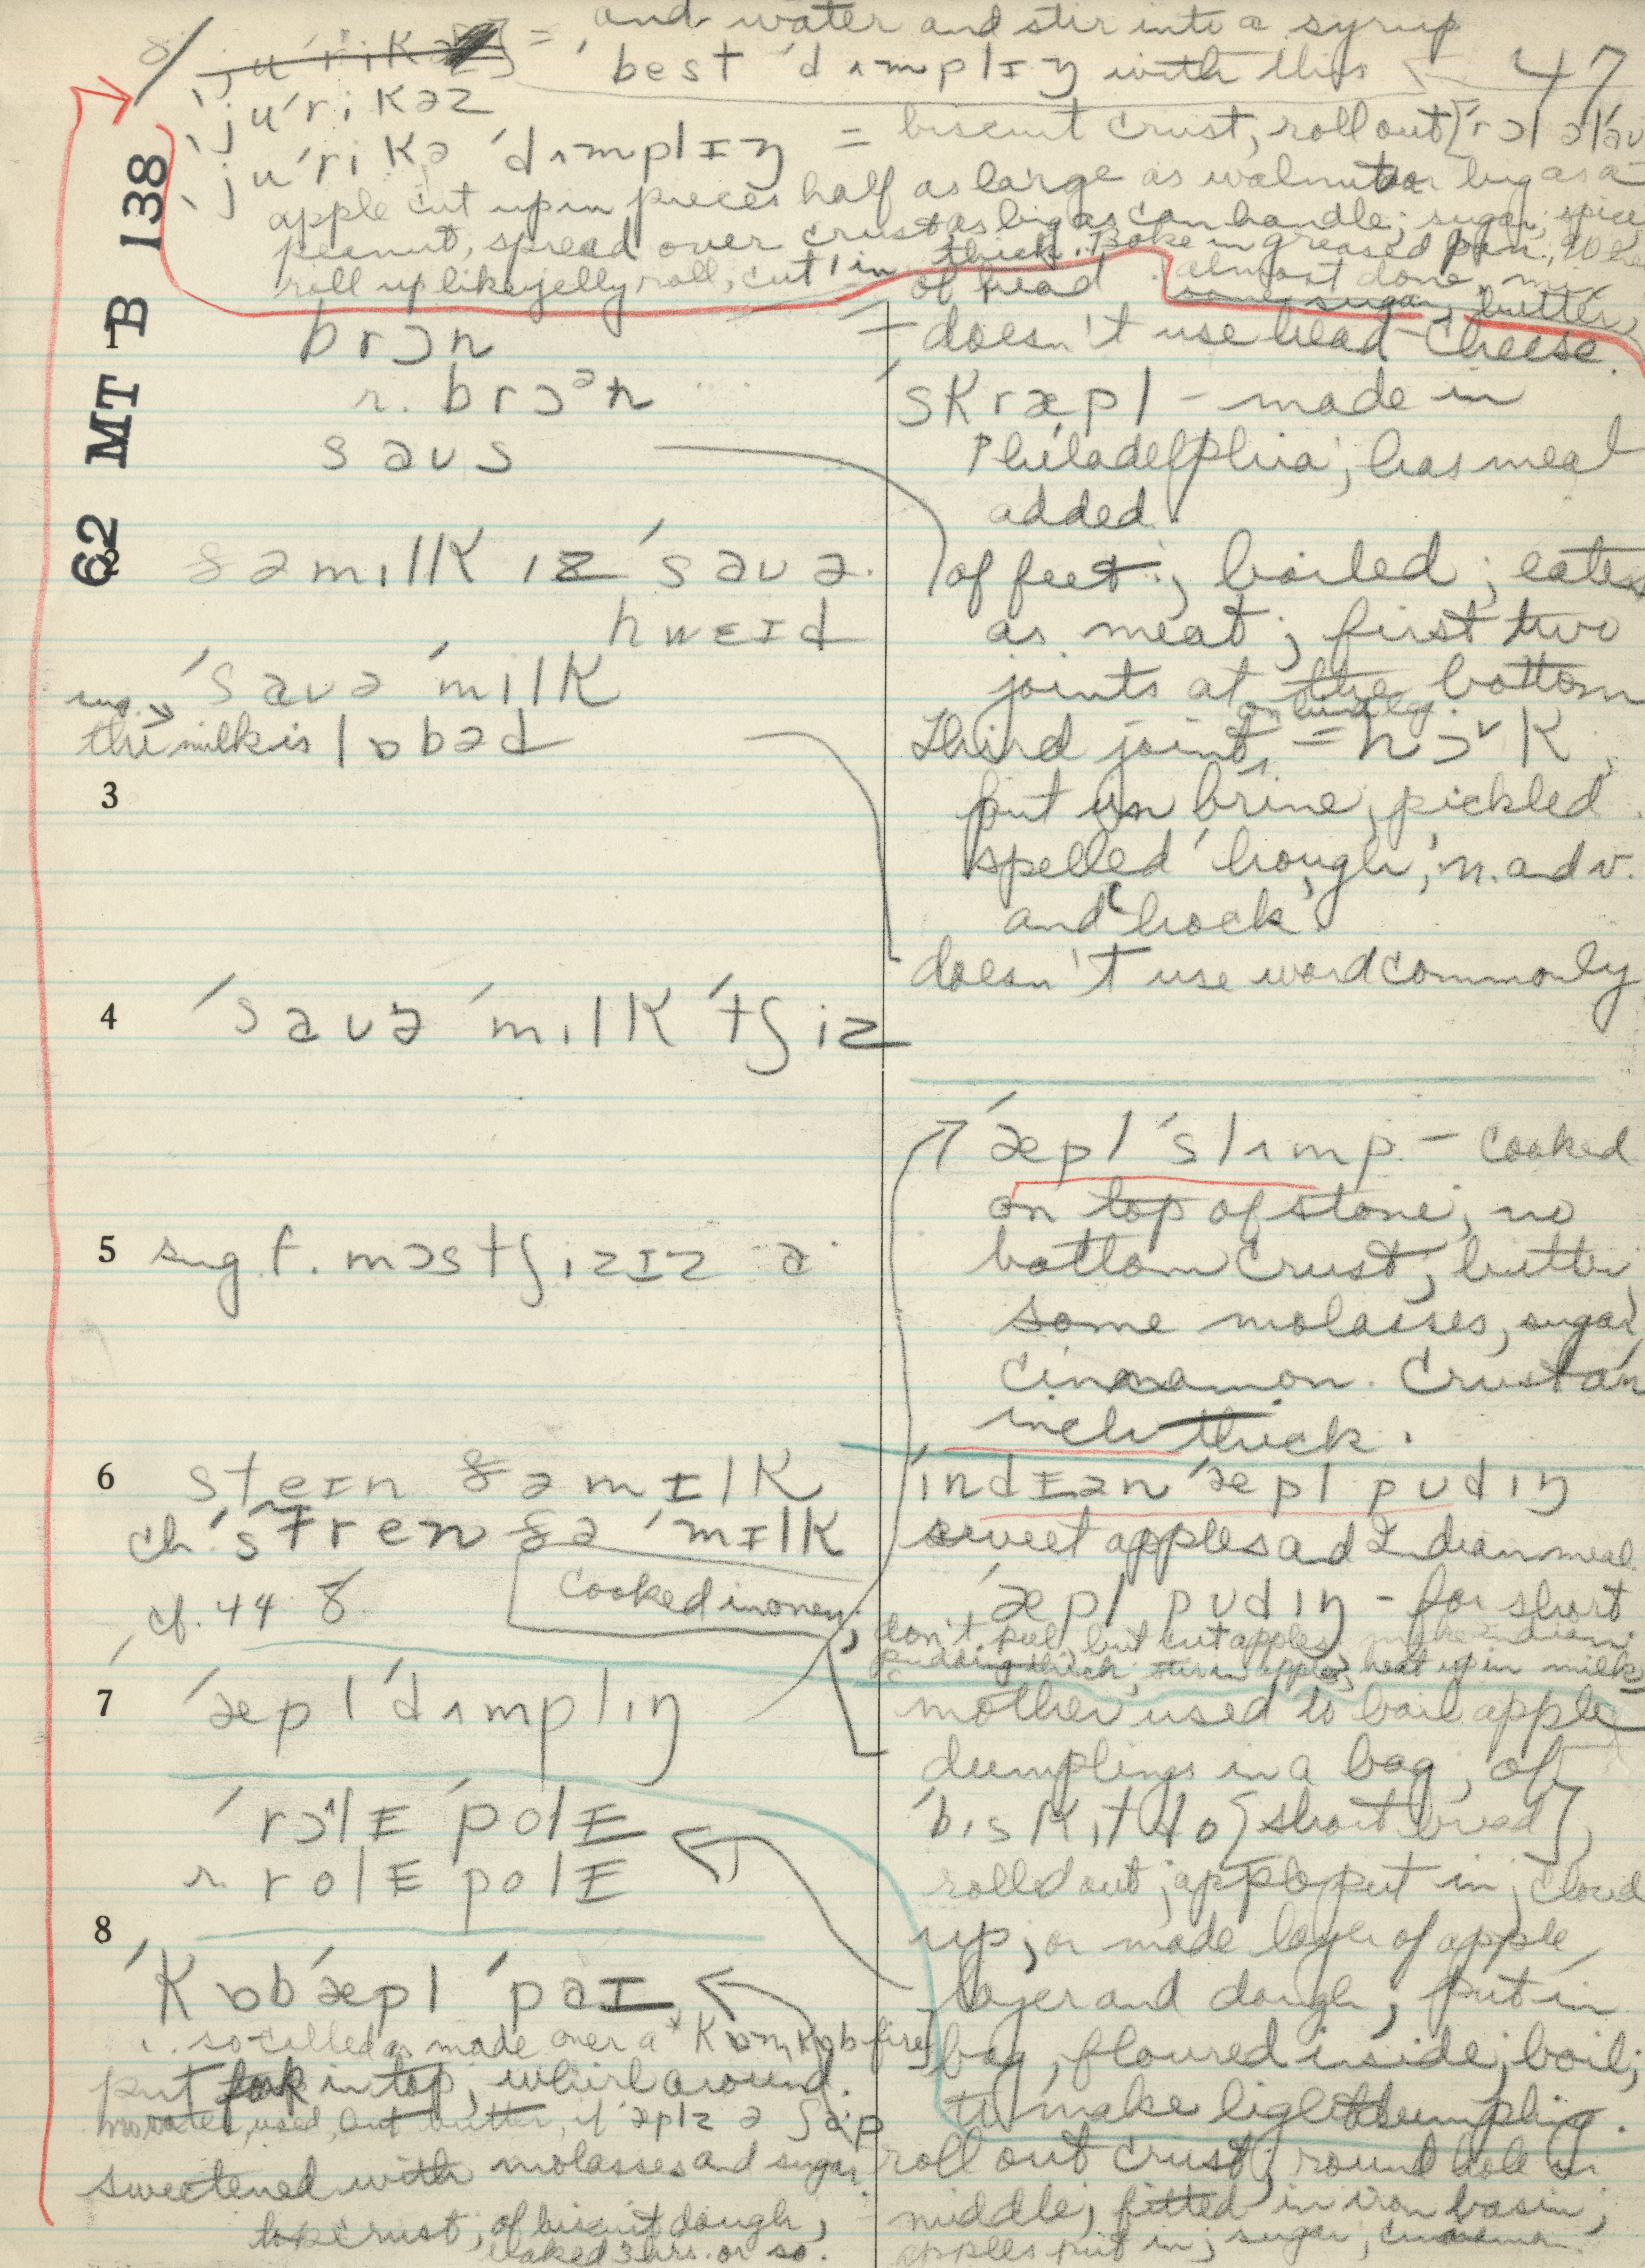 8/ ju'rikəz = and water and stir into a syrup
'best 'dʌmplɪŋ with this 47
'ju'rikəz
'ju'rikə 'dʌmplɪŋ = biscuit crust, roll out ['rɔl
apple cut up in pieces half as large as walnut or big as a
peanut, spread over crust as big as can handle; sugar, spice
roll up like jelly roll, cut 1 in thick. Bake in greased pan.
of head almost done, mix
some sugar, butter,
62 MT B 138
brɔn doesn't use head-cheese
r. brɔᵊn
'skræpl - made in
Philadelphia; has meat
added.
saus
of feet; boiled; eaten
as meat; first two
joints at the bottom
on hind leg.
Third joint = hɔ˅k;
put in brine, pickled.
spelled 'hough', n. adv.
and 'hock'
ðə mɪlk ɪz 'sauə
hwɛɪd
'sauə 'mɪlk
sug. →
the milk is lɒbəd
doesn't use word commonly
3
4 'sauə 'mɪlk 'tʃiz
5 sug f. mɔstʃizɪz ə
'æpl 'slʌmp - cooked
on top of stone; no
bottom crust; butter
some molasses, sugar,
cinnamon. Crust an
inch thick.
6 streɪn ðə mɪlk
ch. 'stren ðə 'mɪlk
cf. 44 8
'ɪndɪən 'æpl pudɪŋ
sweet apples ad Indian meal
'æpl pudɪŋ - for short
don't peel, but cut apples, make indian
pudding thick; stir in apples, heat up in milk
cooked in oven;
7 'æpl 'dʌmplɪŋ
mother used to boil apple
dumplings in a bag; of
'bɪskɪt do [short bread],
rolled out; apple put in; closed
up; or made layer of apple,
layer and dough; put in
bag, floured inside; boil;
to make light dumpling.
'rɔlɪ 'polɪ
r. rolɪ polɪ
8
'kɒb'æpl 'paɪ
so-called as made over a kɒrnkɒb fire
put fork in top, whirl around.
no water used, but butter, if æplz ə ʃɑp
sweetened with molasses and sugar.
top crust; of biscuit dough,
baked 3 hrs. or so.
roll out crust; round hole in
middle; fitted in iron basin;
apples put in; sugar, cinnamon